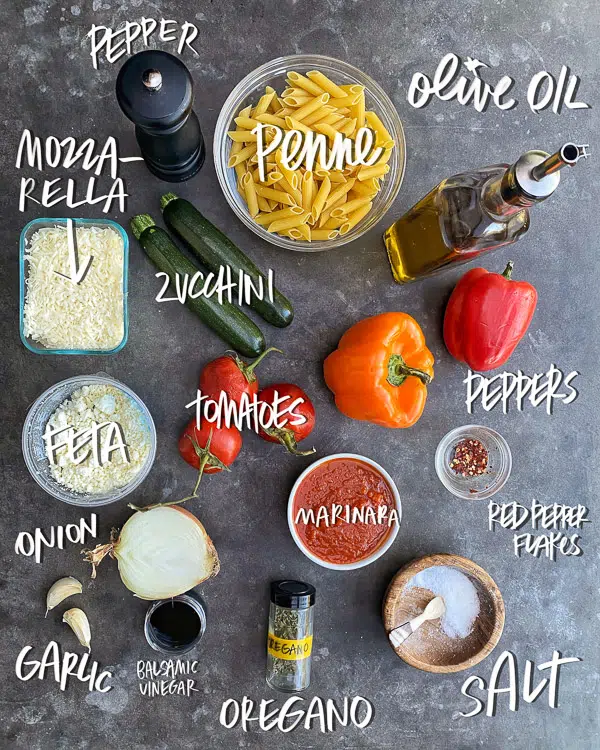 PEPPER
olive OIL
MOZZA-
RELLA
Penne
ZUCCHINI
PEPPERS
TOMATOES
FETA
MARINARA
RED PEPPER
FLAKES
ONION
GARLIC
BALSAMIC
VINEGAR
OREGANO
OREGANO
SALT